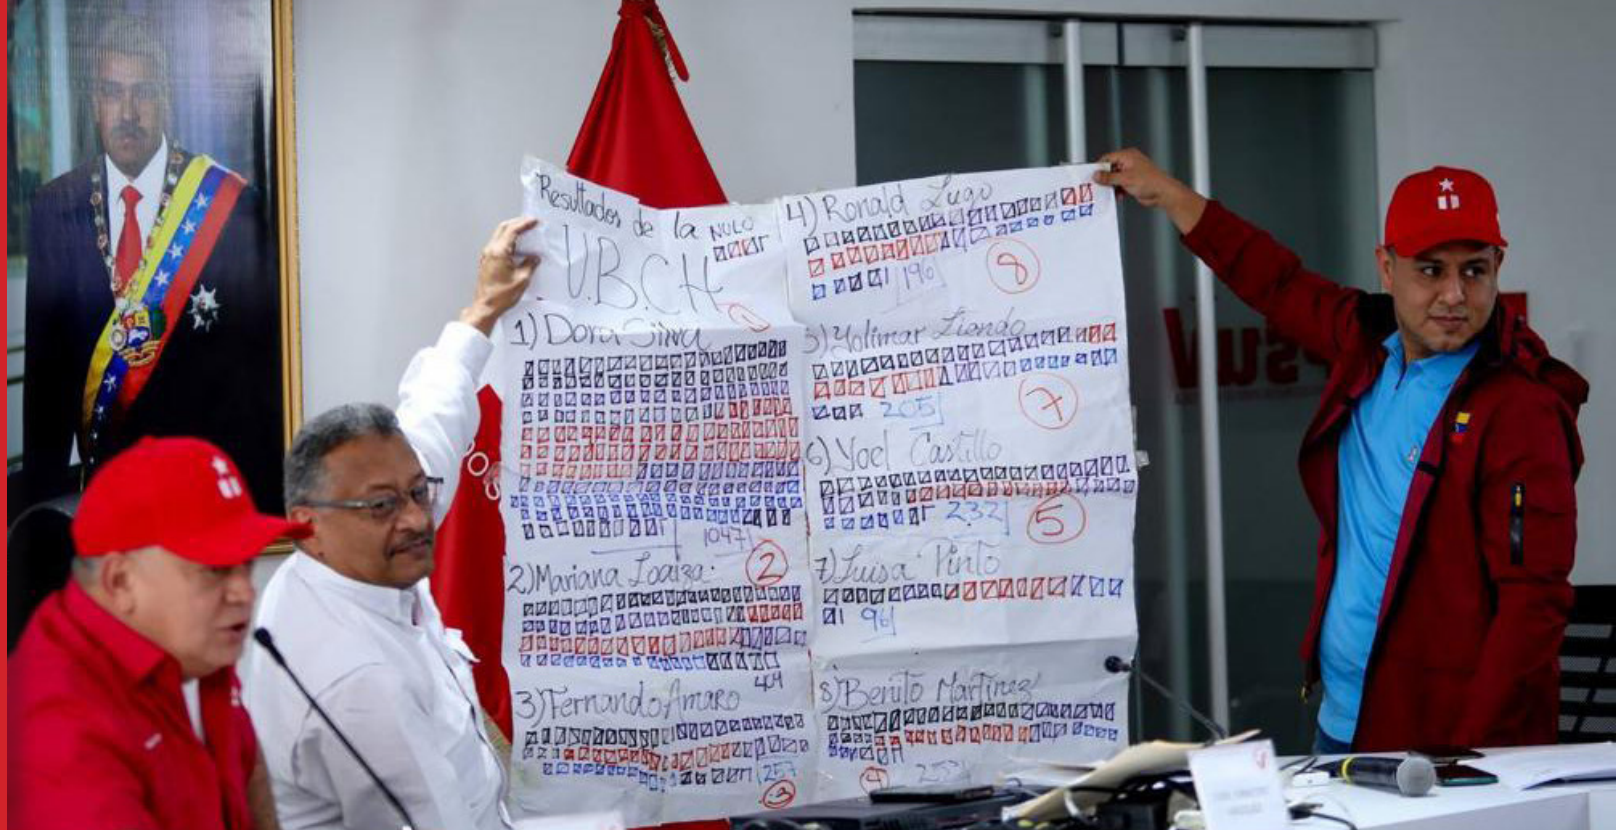 Resultados de la
NULO
U.B.CH
1
1) Dora Silva
1047
2
2) Mariana Loaiza
404
3) Fernando Amaro
257
3
4) Ronald Lugo
196
8
5) Yolimar Liendo
205
7
6) Yoel Castillo
232
5
7) Luisa Pinto
96
8) Benito Martinez
253
4
Psuv